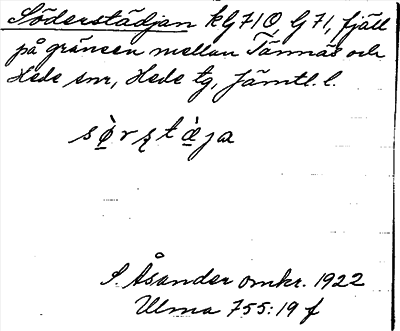 Söderstädjan kG710 G71, fjäll
på gränsen mellan Tännäs och
Hede snr, Hede tg, Jämtl. l.
S. Åsander omkr. 1922
Ulma 755:19 f